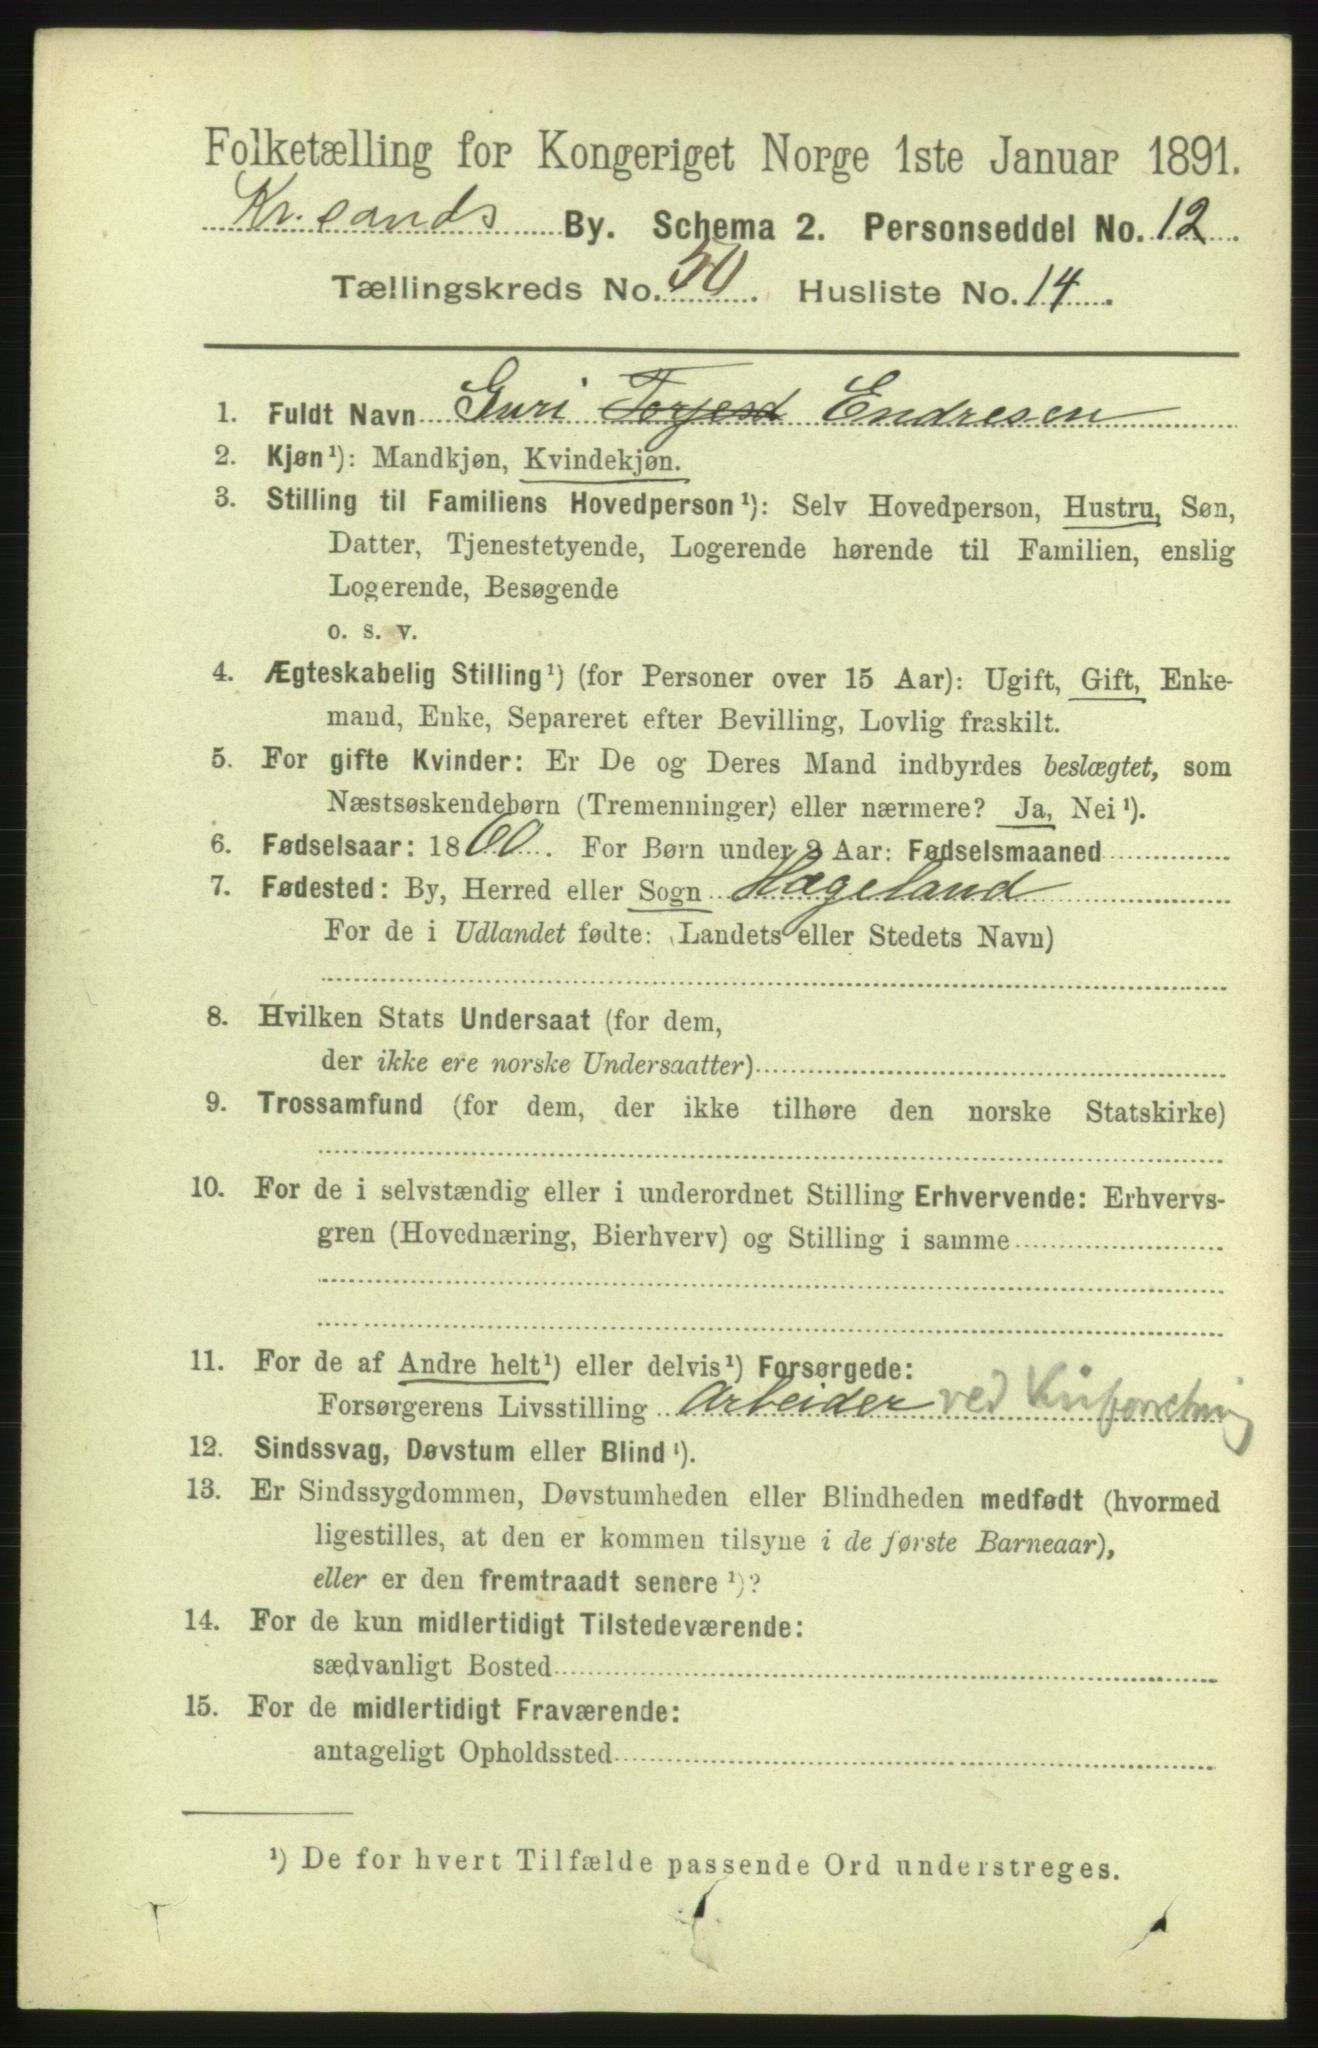 Folketælling for Kongeriget Norge 1ste Januar 1891.
Kr.sands By. Schema 2. Personseddel No. 12.
Tællingskreds No. 50. Husliste No. 14.
1. Fuldt Navn Guri Torjesd Endresen
2. Kjøn¹): Mandkjøn, Kvindekjøn.
3. Stilling til Familiens Hovedperson¹): Selv Hovedperson, Hustru, Søn,
Datter, Tjenestetyende, Logerende hørende til Familien, enslig
Logerende, Besøgende
o. s. v.
4. Ægteskabelig Stilling¹) (for Personer over 15 Aar): Ugift, Gift, Enke-
mand, Enke, Separeret efter Bevilling, Lovlig fraskilt.
5. For gifte Kvinder: Er De og Deres Mand indbyrdes beslægtet, som
Næstsøskendebørn (Tremenninger) eller nærmere? Ja, Nei¹).
6. Fødselsaar: 1860. For Børn under 2 Aar: Fødselsmaaned
7. Fødested: By, Herred eller Sogn Hægeland
For de i Udlandet fødte: (Landets eller Stedets Navn)
8. Hvilken Stats Undersaat (for dem,
der ikke ere norske Undersaatter)
9. Trossamfund (for dem, der ikke tilhøre den norske Statskirke)
10. For de i selvstændig eller i underordnet Stilling Erhvervende: Erhvervs-
gren (Hovednæring, Bierhverv) og Stilling i samme
11. For de af Andre helt¹) eller delvis¹) Forsørgede:
Forsørgerens Livsstilling Arbeider ved
12. Sindssvag, Døvstum eller Blind¹).
13. Er Sindssygdommen, Døvstumheden eller Blindheden medfødt (hvormed
ligestilles, at den er kommen tilsyne i de første Barneaar),
eller er den fremtraadt senere¹)?
14. For de kun midlertidigt Tilstedeværende:
sædvanligt Bosted
15. For de midlertidigt Fraværende:
antageligt Opholdssted
¹) De for hvert Tilfælde passende Ord understreges.